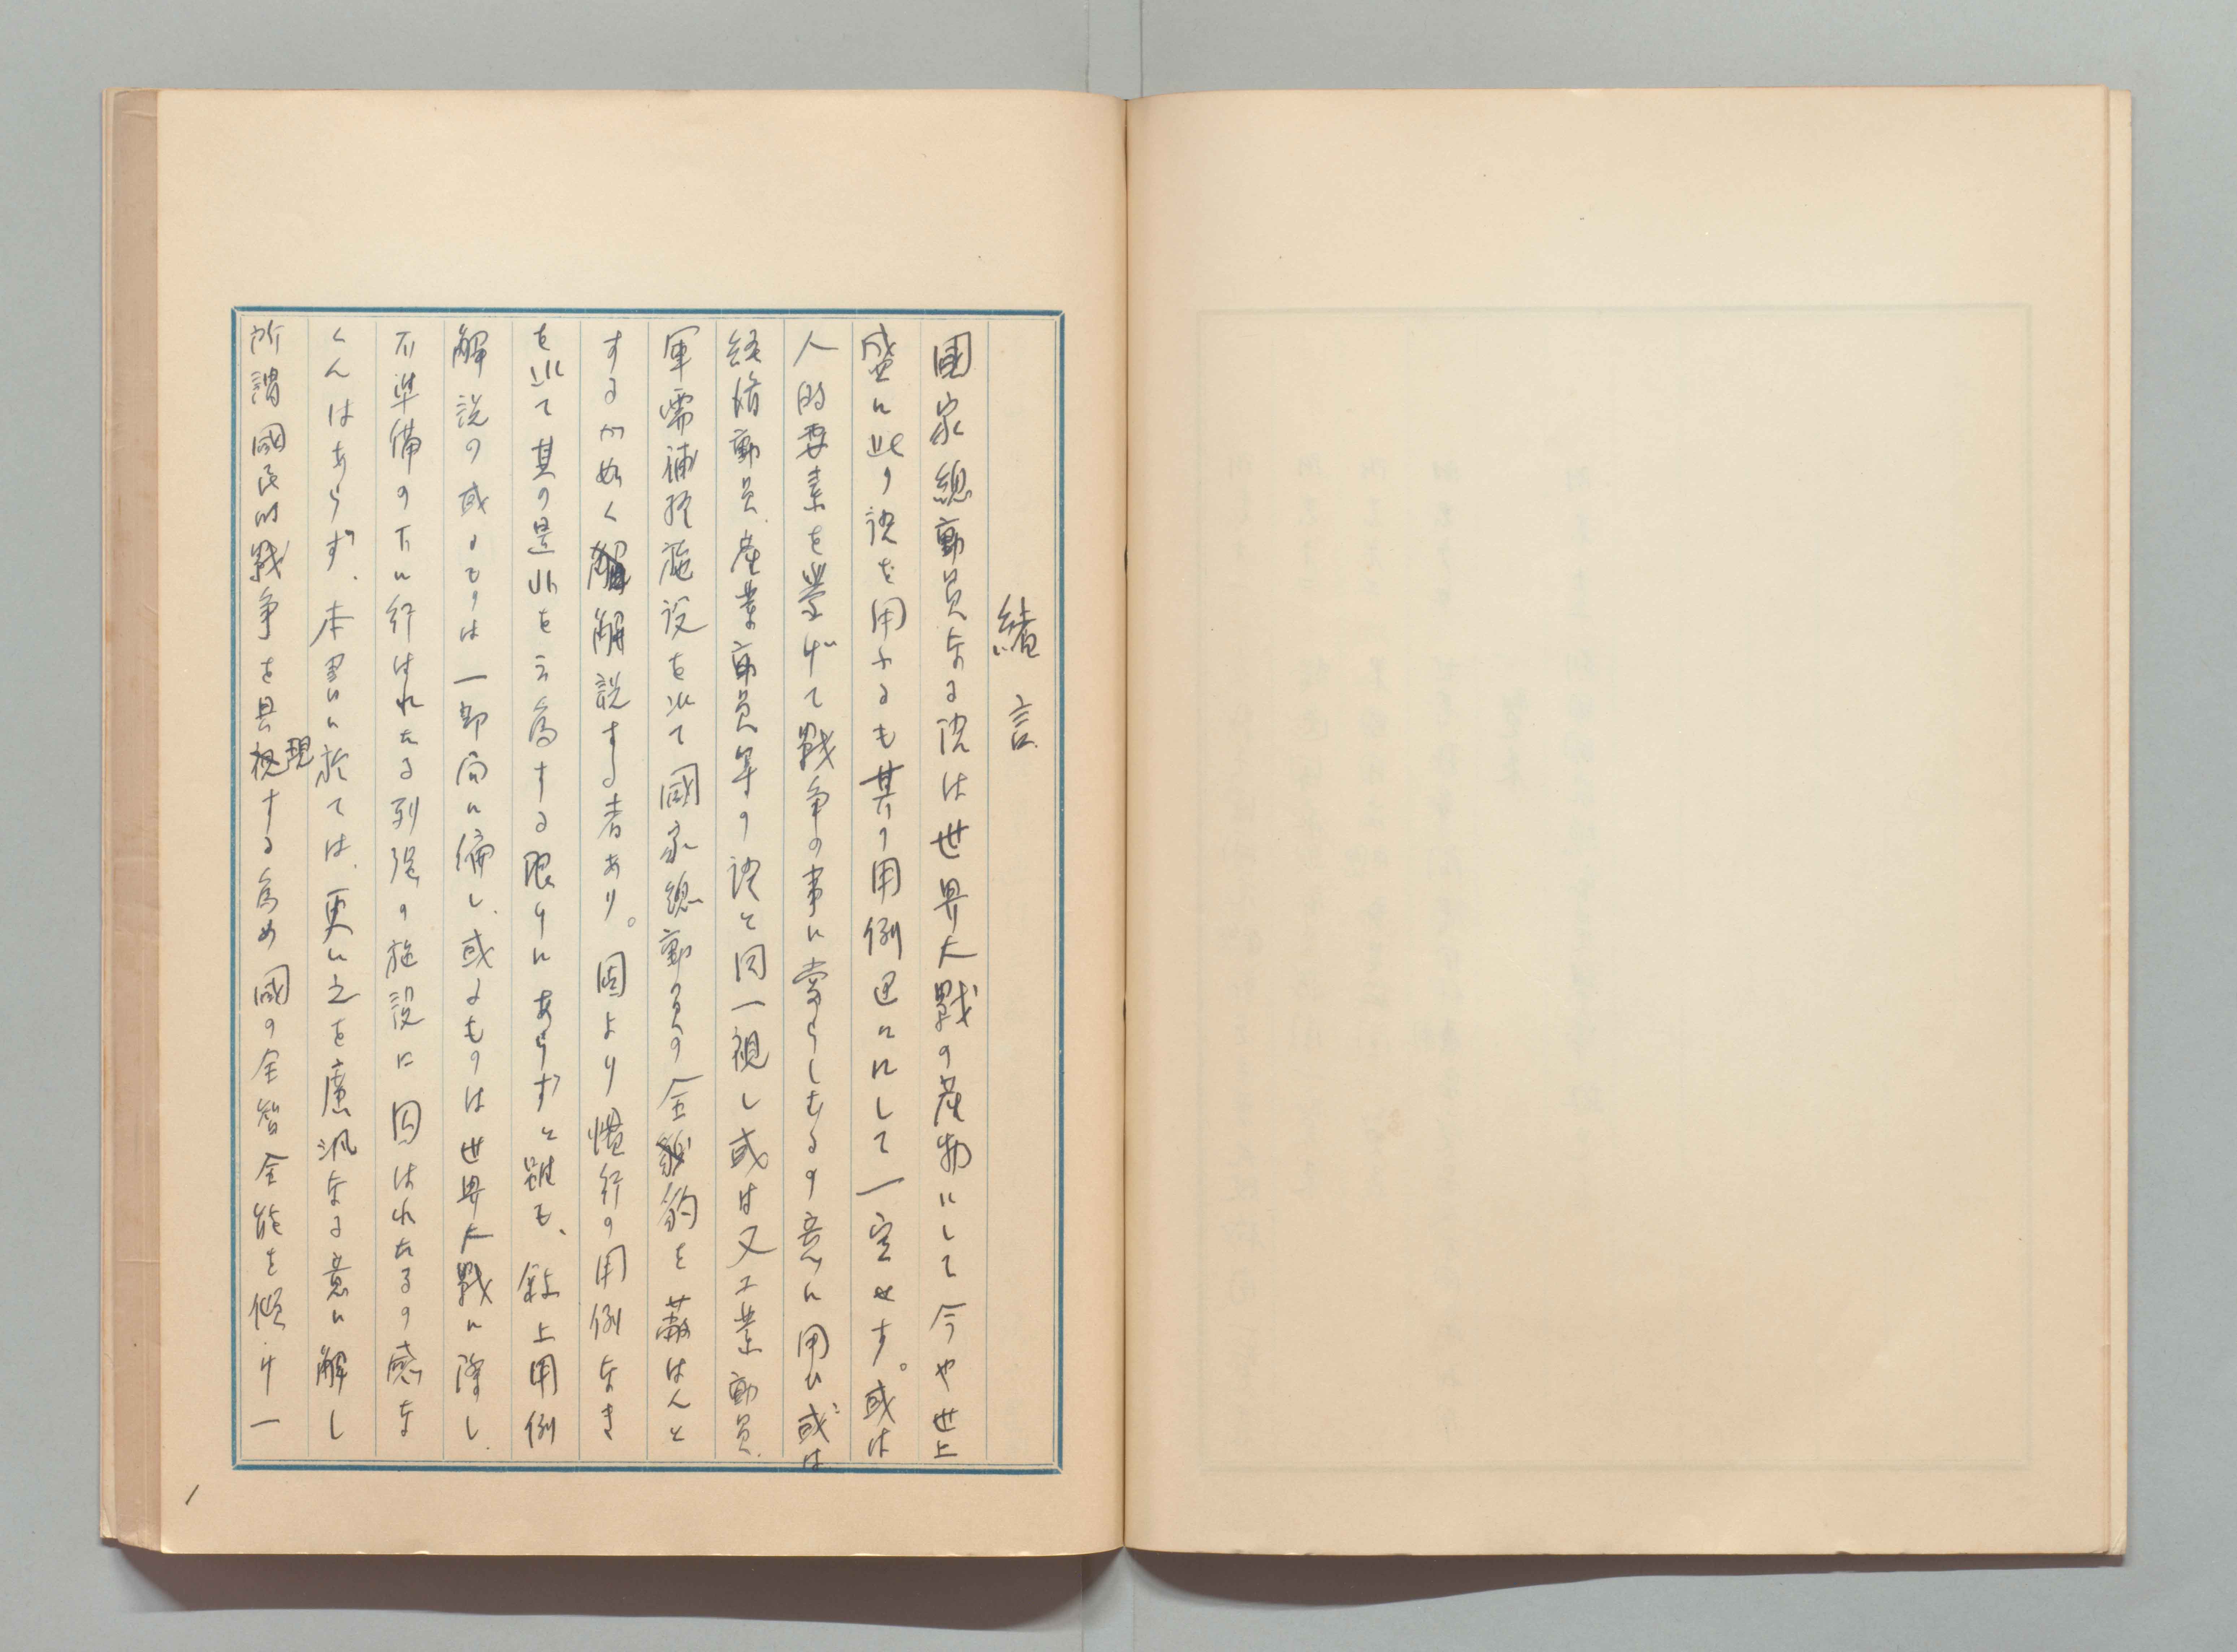 緒言
國家総動員なる語は世界大戰の産物にして今や世上
盛に此の語を用ふるも其の用例区々にして一定せす。或は
人的要素を挙げて戰争の事に當らしむるの意に用ひ或は
経済動員、産業動員等の語と同一視し或は又工業動員、
軍需補給施設を以て國家総動員の全豹を蔽はんと
するか如く解説する者あり。固より慣行の用例なき
を以て其の是非を云為する限りにあらずと雖も、叙上用例
解説の或るものは一部局に偏し、或るものは世界大戰に際し、
不準備の下に行はれたる列強の施設に囚はれたるの感な
くんはあらず、本書に於ては、更に之を廣汎なる意に解し
所謂國民的戰争を具現する為め國の全智全能を傾け一
1